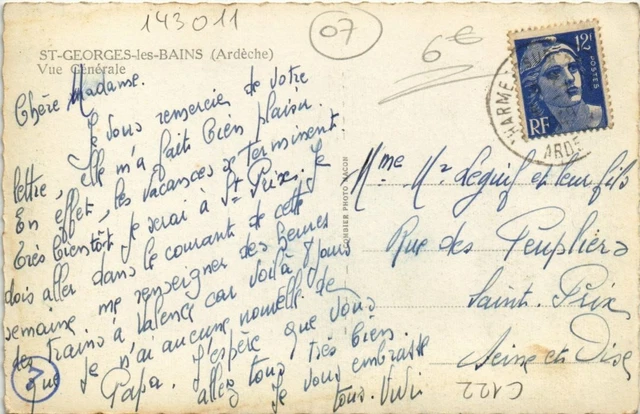 143011
07
6€
ST-GEORGES-les-BAINS (Ardèche)
Vue Générale
Chère Madame.
Je vous remercie de votre
lettre, elle m'a fait bien plaisir.
En effet, les vacances se terminent
très bientôt je serai à St Prix. Je
dois aller dans le courant de cette
semaine me renseigner des heures
des trains à Valence car voilà 8 jours
que je n'ai aucune nouvelle de
Papa. J'espère que vous
allez tous très bien.
Je vous embrasse
tous. Vivi
COMBIER PHOTO MACON
12F
POSTES
RF
CHARMES
ARDE
Mme Mr Leguif et leur fils
Rue des Peupliers
Saint. Prix
Seine et Oise
C122